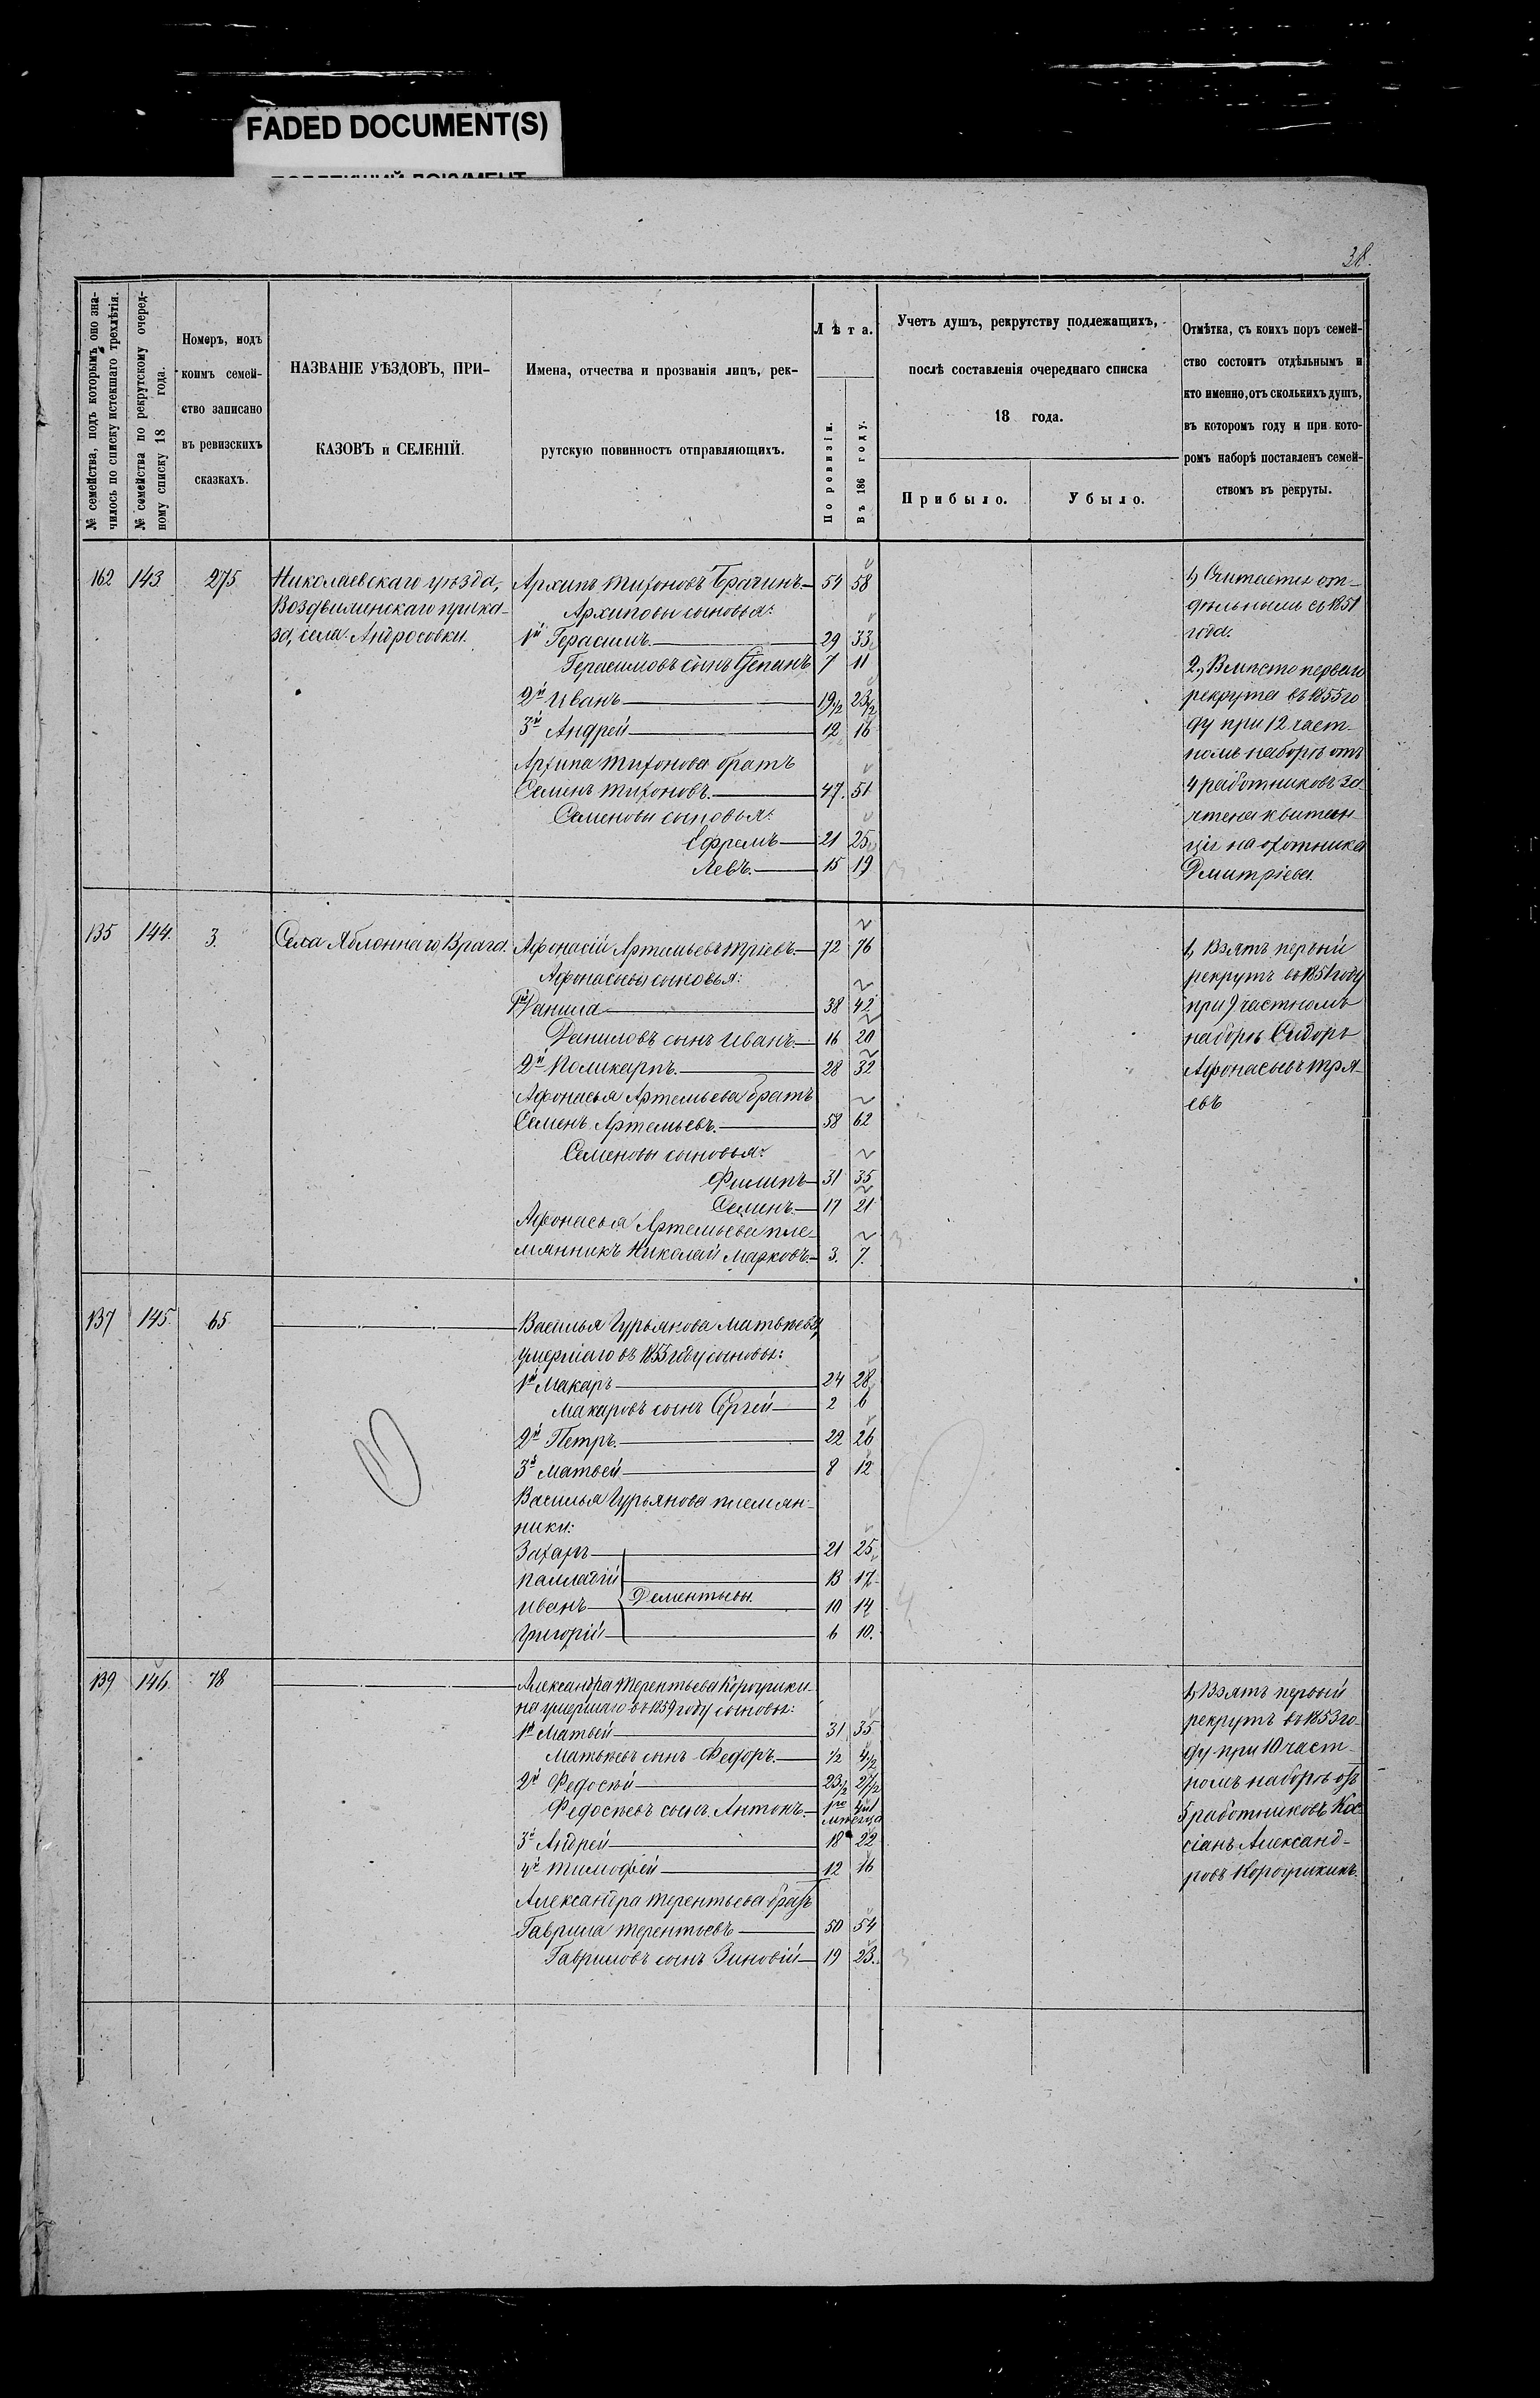 FADED DOCUMENT(S)
38.
№ семейства, подъ которымъ оно зна-
чилось по списку истекшаго трехлѣтія.
№ семейства по рекрутскому очеред-
ному списку 18 года.
Номеръ, подъ
коимъ семей-
ство записано
въ ревизскихъ
сказкахъ.
НАЗВАНІЕ УѢЗДОВЪ, ПРИ-
КАЗОВЪ и СЕЛЕНІЙ.
Имена, отчества и прозванія лицъ, рек-
рутскую повинность отправляющихъ.
Лѣта.
По ревизіи.
Въ 186 году.
Учетъ душъ, рекрутству подлежащихъ,
послѣ составленія очереднаго списка
18 года.
Прибыло.
Убыло.
Отмѣтка, съ коихъ поръ семей-
ство состоитъ отдѣльнымъ и
кто именно, отъ сколькихъ душъ,
въ которомъ году и при кото-
ромъ наборѣ поставленъ семей-
ствомъ въ рекруты.
162 143 275
Николаевскаго уѣзда,
Воздвиженскаго прика-
за, села Андросовки.
Архипъ Тихоновъ 54 58
Архиповы сыновья:
1й Герасимъ 29 33
Герасимовъ сынъ Степанъ 7 11
2й Иванъ 19½ 23½
3й Андрей 12 16
Архипа Тихонова братъ
Семенъ Тихоновъ. 47. 51
Семеновы сыновья:
Ефремъ 21 25
Левъ. 15 19
1, Считается от-
дѣльнымъ съ 1851
года.
2, Вмѣсто перваго
рекрута въ 1855 го
ду при 12 част-
номъ наборѣ отъ
4 работниковъ за-
чтена квитан-
ція на охотника
Дмитріева.
135 144. 3.
Села Яблоннаго Врага.
Афонасій Артемьевъ Тріевъ. 72 76
Афонасьевы сыновья:
1й Данила 38 42
Даниловъ сынъ Иванъ. 16 20
2й Поликарпъ. 28 32
Афонасья Артемьева братъ
Семенъ Артемьевъ. 58 62
Семеновы сыновья:
Филипъ 31 35
17 21
Афонасья Артемьева пле-
мянникъ Николай Марковъ. 3. 7.
1, Взятъ первый
рекрутъ въ 1851 году
при 9 частномъ
наборѣ Сидоръ
Афонасьевъ Тря-
евъ
137 145. 65
Василья Гурьянова Матвѣева,
умершаго въ 1853 году сыновья:
1й Макаръ 24 28
Макаровъ сынъ Сергей 2 6
2й Петръ. 22 26
3й Матвей 8 12
Василья Гурьянова племян-
ники:
Захаръ 21 25
Палладій 13 17
Дементьевы.
Иванъ 10 14
Григорій 6 10.
4
139 146. 78
Александра Терентьева
на умершаго въ 1859 году сыновья:
1й Матвей 31 35
Матвѣевъ сынъ Федоръ. ½ 4½
2й Федосѣй 23½ 27½
Федосѣевъ сынъ Антонъ.
3й Андрей 18 22
4й Тимофей 12 16
Александра Терентьева братъ
Гаврила Терентьевъ 50 54
Гавриловъ сынъ Зиновій 19 23.
3
1, Взятъ первый
рекрутъ въ 1853 го-
ду при 10 част-
номъ наборѣ отъ
5 работниковъ Кас-
сіанъ Александ-
ровъ